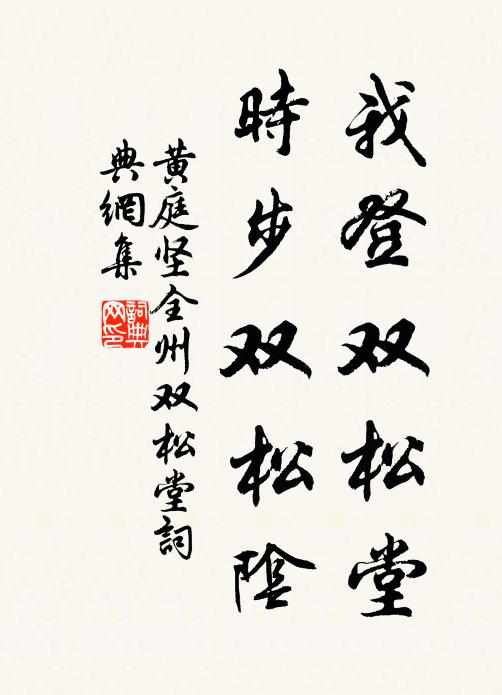 我登双松堂
時步双松陰
黄庭坚全州双松堂詞
典網集
詞典網印